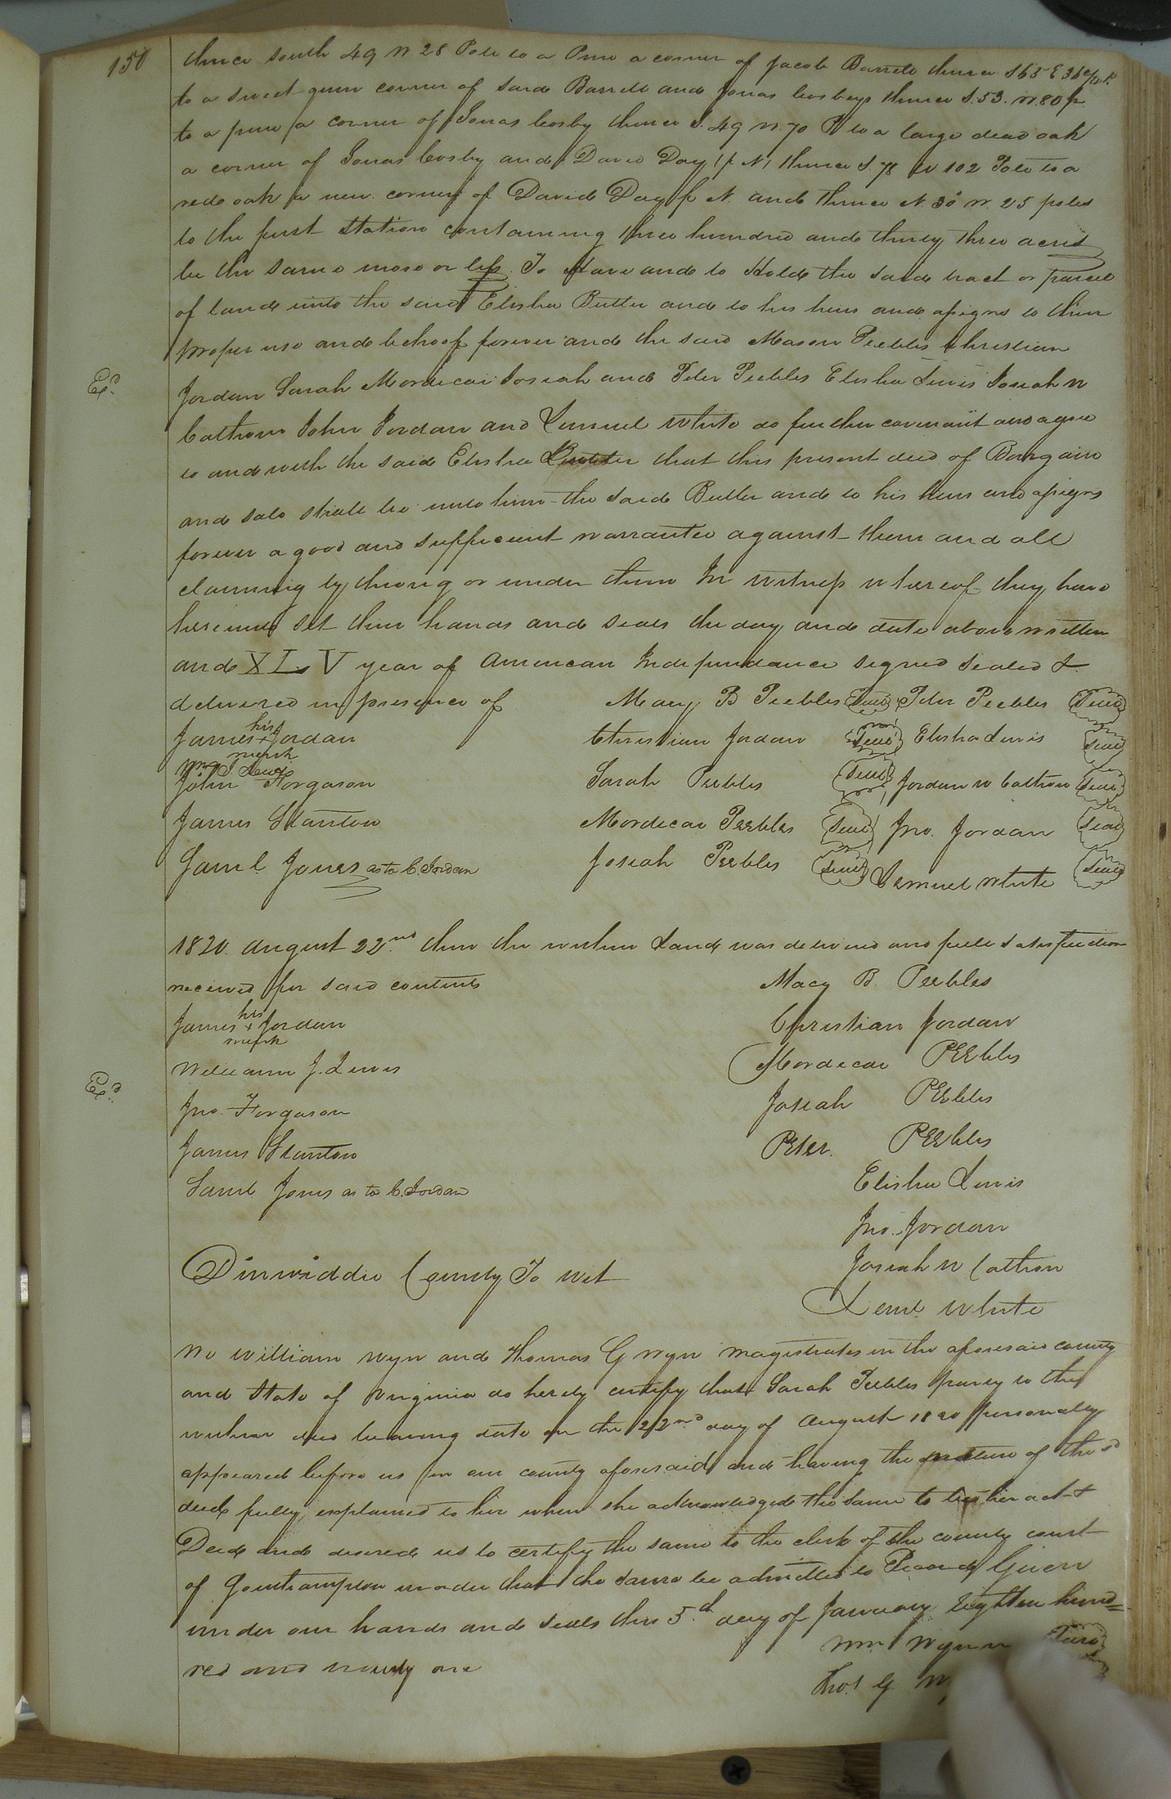 150
thence South 49 W 28 Pole to a Pine a corner of Jacob Barrett thence S 65 E 36
to a sweet gum corner of said Barrett and Jonas Cosbys thence S. 53. W. 80 p
to a pine a corner of Jonas Cosby thence S. 49 W. 70 P to a large dead oak
a corner of Jonas Cosby and David Day (p N) thence S 78 W 102 Pole to a
rede oak a new corner of David Day p N. and thence N. 30 W. 25 poles
to the first Station containing three hundred and thirty three acres
be the same more or less To Have and to Hold the said tract or parcel
of land unto the said Elisha Butler and to his heirs and assigns to their
proper use and behoof forever and the said Mason Peebles Christian
Exd.
Jordan Sarah Mordecai Josiah and Peter Peebles Elisha Lewis Josiah W
Cathron John Jordan and Lemuel White do further covenant and agree
to and with the said Elisha Butler that this present deed of Bargain
and sale shall be unto him the said Butler and to his heirs and assigns
forever a good and sufficient warrantee against them and all
claiming by throug or under them In witness whereof they have
hereunto set their hands and seals the day and date above written
and XLV year of American Independance signed sealed &
delivered in presence of Macy B Peebles Seal Peter Peebles Seal
James his + mark Jordan Christian Jordan Seal Elisha Lewis Seal
Wm J Lewis
John Forgason Sarah Peebles Seal Jordan W Cathron Seal
James Stanton Mordecai Peebles Seal Jno. Jordan Seal
Saml Jones as to C. Jordan Josiah Peebles Seal Lemuel White Seal
1820. August 22nd then the within Land was delivered and full satisfaction
received for said contents Macy B. Peebles
James his + mark Jordan Christian Jordan
William J. Lewis Mordecai Peebles
Exd.
Jno. Forgason Josiah Peebles
James Stanton Peter. Peebles
Saml Jones as to C. Jordan Elisha Lewis
Jno. Jordan
Dinwiddie County To wit Josiah W Cathron
Leml. White
We William Wyn and Thomas G Wyn magistrates in the aforesaid county
and State of Virginia do hereby certify that Sarah Peebles party to the
within deed bearing date on the 22nd day of August 1820 personally
appeared before us in our county aforesaid and having the nature of the sd
deed fully explained to her when she acknowledged the same to be her act &
Deed and desired us to certify the same to the clerk of the county court
of Southampton in order that the same be admitted to Record Given
under our hands and seals this 5.th day of January Eighteen hund=
red and twenty one Wm Wynn Seal
Thos. G